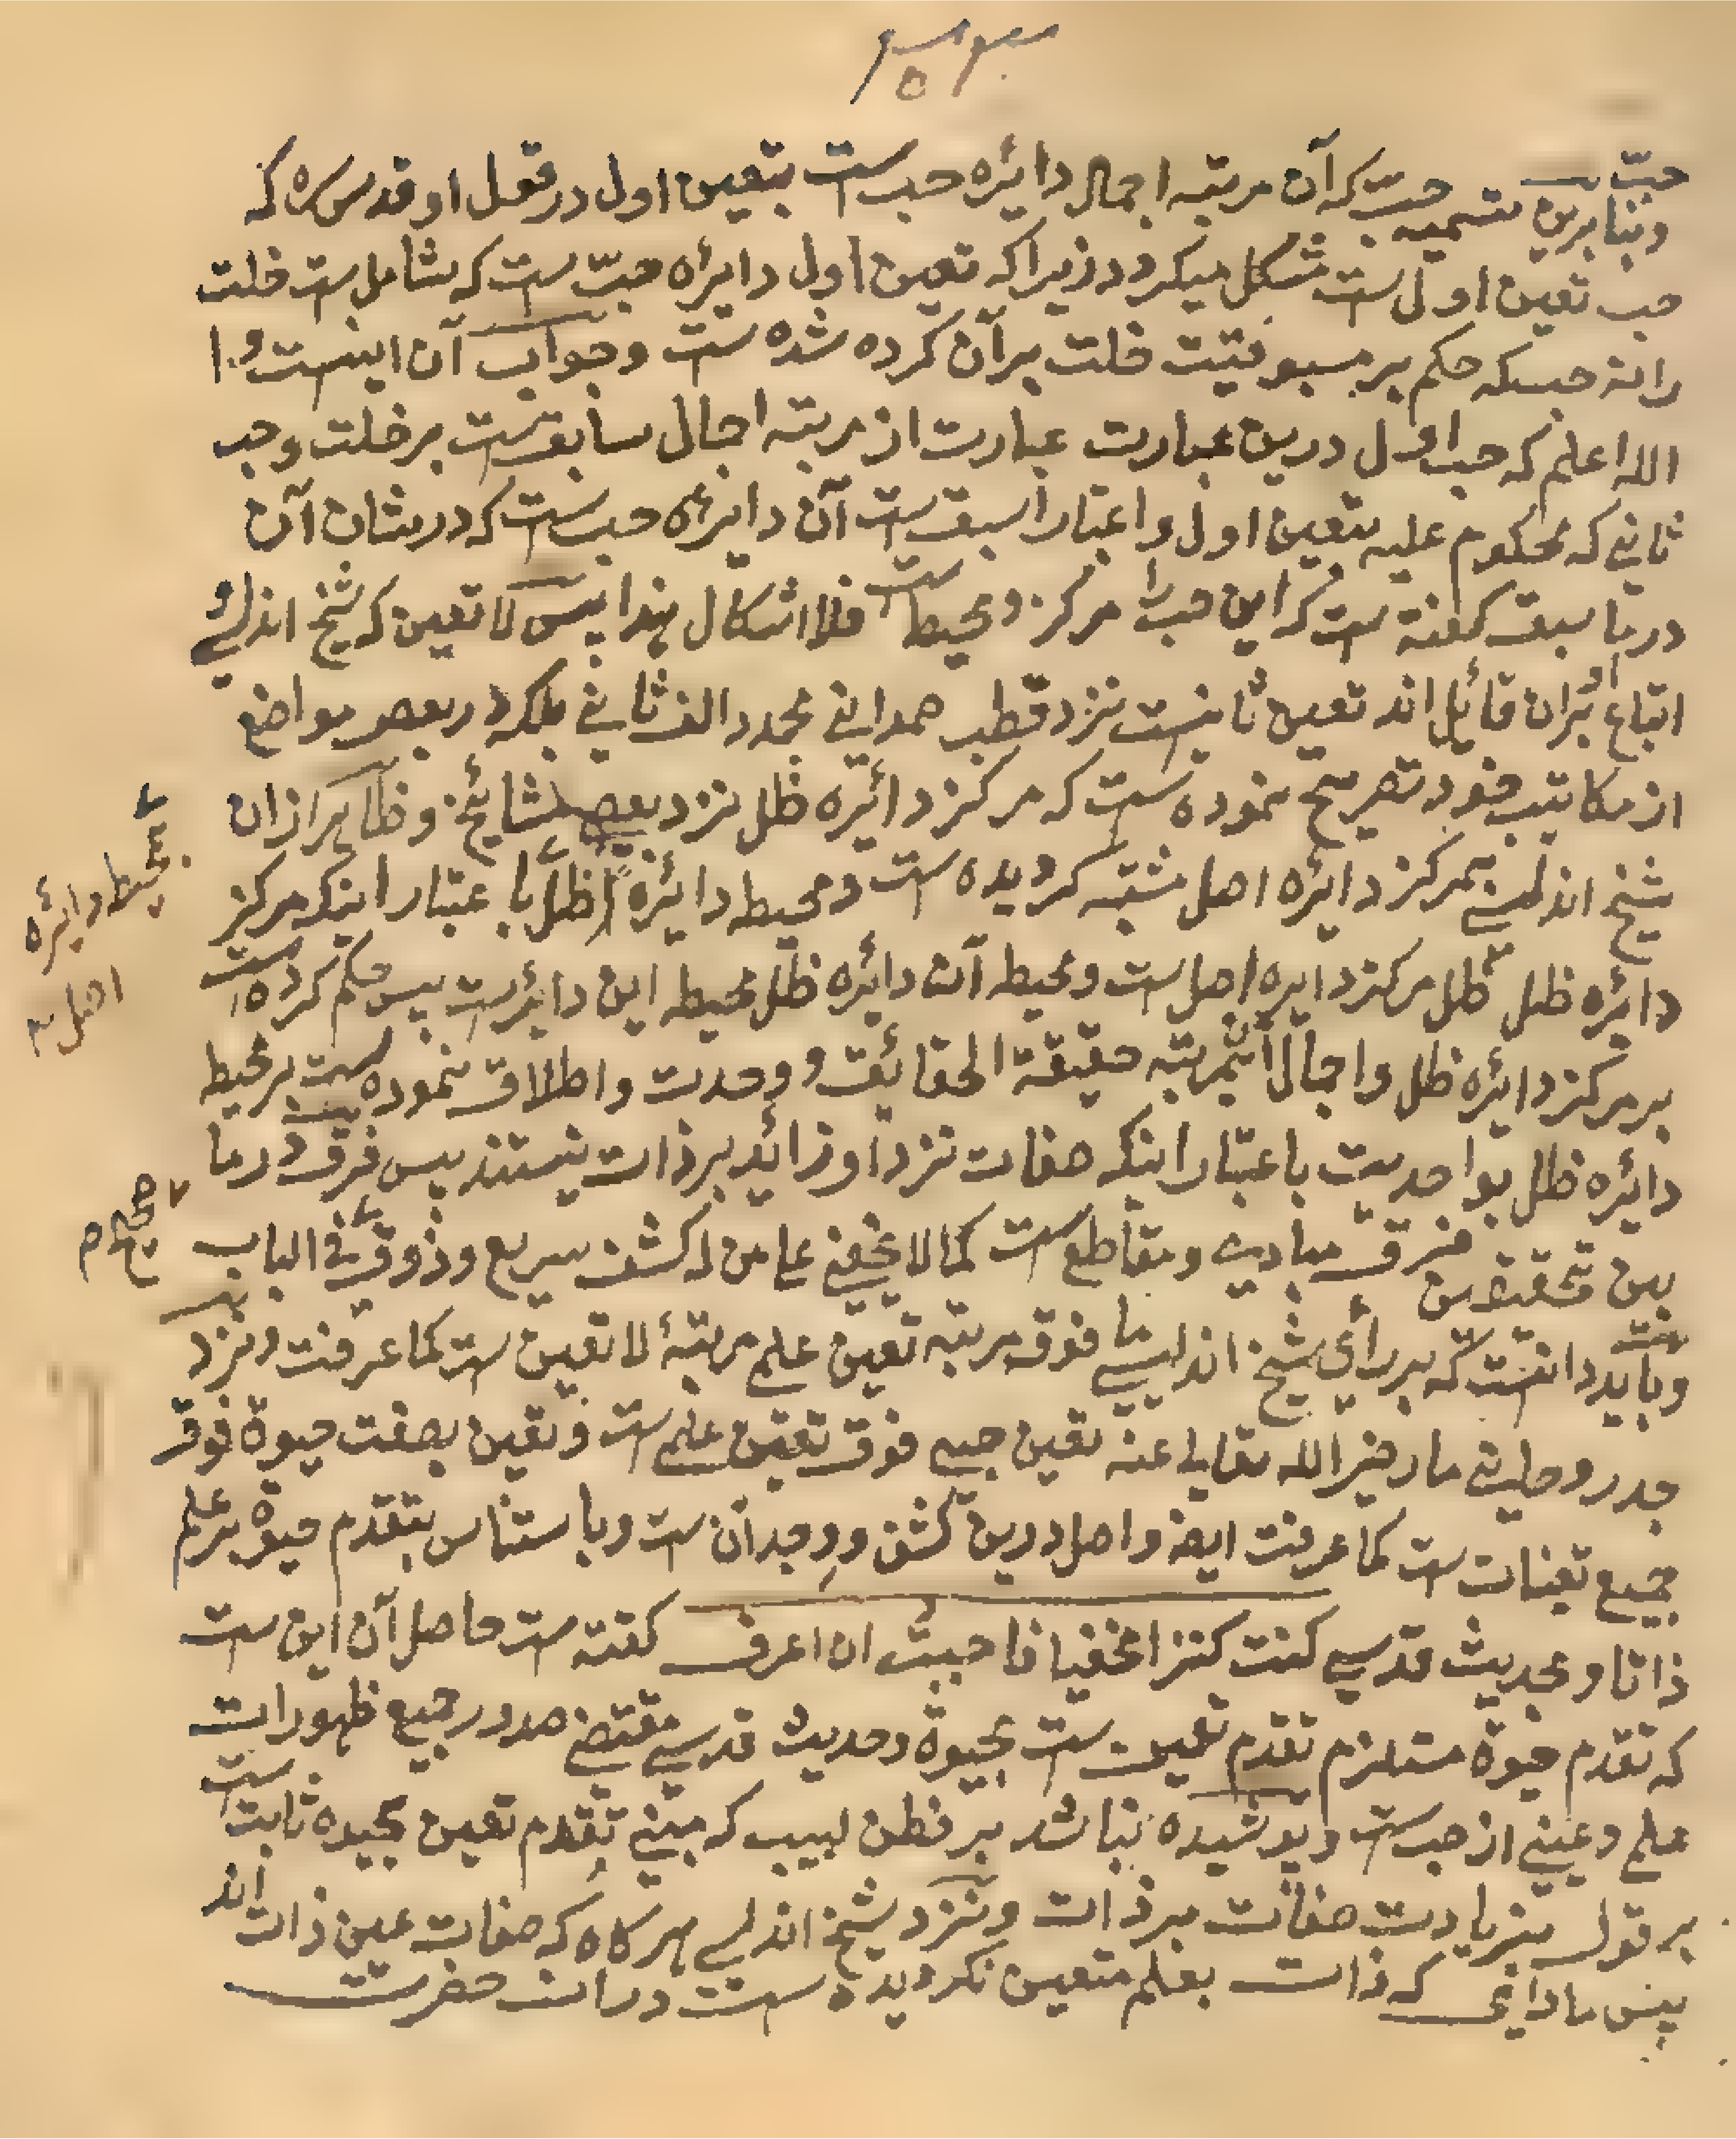 وبنابرین تسمیه حبّ حب که آن مرتبه اجمال دایٔره حب ست بتعین اول در قول او قدس سره که
حب تعین اولی ست مشکل میکردد زیراکه تعین اول دایٔره حبّ ست که شامل ست خلت
رانه حبیکه حکم بر مسبوقیت خلت بر آن کرده شده ست وجواب آن اینست و
الله اعلم که حب اول درین عبارت عبارت از مرتبه اجمال سابقست بر خلت وحب
ثانی که محکوم علیه بتعین اول واعتبارا سبق ست آن دایٔره حب ست که در شان آن
در ما سبق کفته ست که این حب را مرکز و محیط ست فلا اشکال هذا پس لا تعین که شیخ اندلسی و
اتباع او بران قایٔل اند تعین ثانیست نزد قطب صمدانی مجدد الف ثانی بلکه در بعض مواضع
از مکاتیب خود تصریح نموده ست که مرکز دایٔره ظل نزد بعض مشایٔخ و ظاهرا ازان
شیخ اندلسی بمرکز دایٔره اصل مشتبه کردیده ست و محیط دایٔره ظل با عتبار اینکه مرکز
محیط دایٔره
اصل
دایٔره ظل ظل مرکز دایره اصل ست و محیط آن دایٔره ظل محیط این دایٔرست پس حکم کرده ست
بر مرکز دایٔره ظل و اجمال آن بمرتبه حقیقة الحقایٔق و وحدت و اطلاق نموده ست بر محیط
دایٔره ظل بواحدیت باعتبار اینکه صفات نزد او زایٔد بر ذات نیستند پس فرق در ما
بین تحقیقین فرق مبادی و مقاطع ست کما لا یخفی علی من له کشف سریع و ذوق فی الباب
صحیح م
وباید دانست که بر رای شیخ اندلسی ما فوق مرتبه تعین علم مرتبهٔ لا تعین ست کما عرفت و نزد
جد روحانی ما رضی الله تعالی عنه تعین حبی فوق تعین علم ست و تعین بصفت حیوة فوق
جمیع تعینات ست کما عرفت ایضا و اصل درین کشف و وجدان ست و با ستناس بتقدم حیوة بر علم
ذاتا و بحدیث قدسی کنت کنزا مخفیا فاحببت ان اعرف کفته ست حاصل آن این ست
که تقدم حیوة مستلزم تقدم تعین ست بحیوة و حدیث قدسی مقتضی صدور جمیع ظهورات
علم و عینی از حب ست و پوشیده نباشد بر فطن لبیب که مبنی تقدم تعین بحیوه ثابت ست
بر قول بزیادت صفات بر ذات و نزد شیخ اندلسی هرکاه که صفات عین ذات اند
پس مادامی که ذات بعلم متعین نکردیده ست دران حضرت